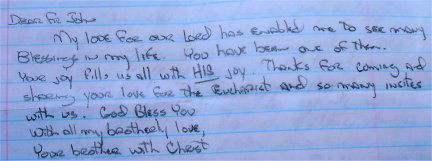 Dear Fr John
My love for our lord has enabled me to see many
Blessings in my life. You have been one of them.
Your joy fills us all with HIS joy. Thanks for coming and
sharing your love for the Eucharist and so many insites
with us. God Bless You
With all my brotherly love,
Your brother with Christ